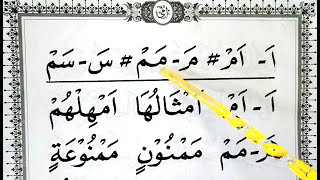 اَ - اَمْ # مَ - مَمْ # سَ - سَمْ
اَ - اَمْ اَمْثَالُهَا اَمْهِلْهُمْ
مَ - مَمْ مَمْنُوْنٍ مَمْنُوْعَةٍ